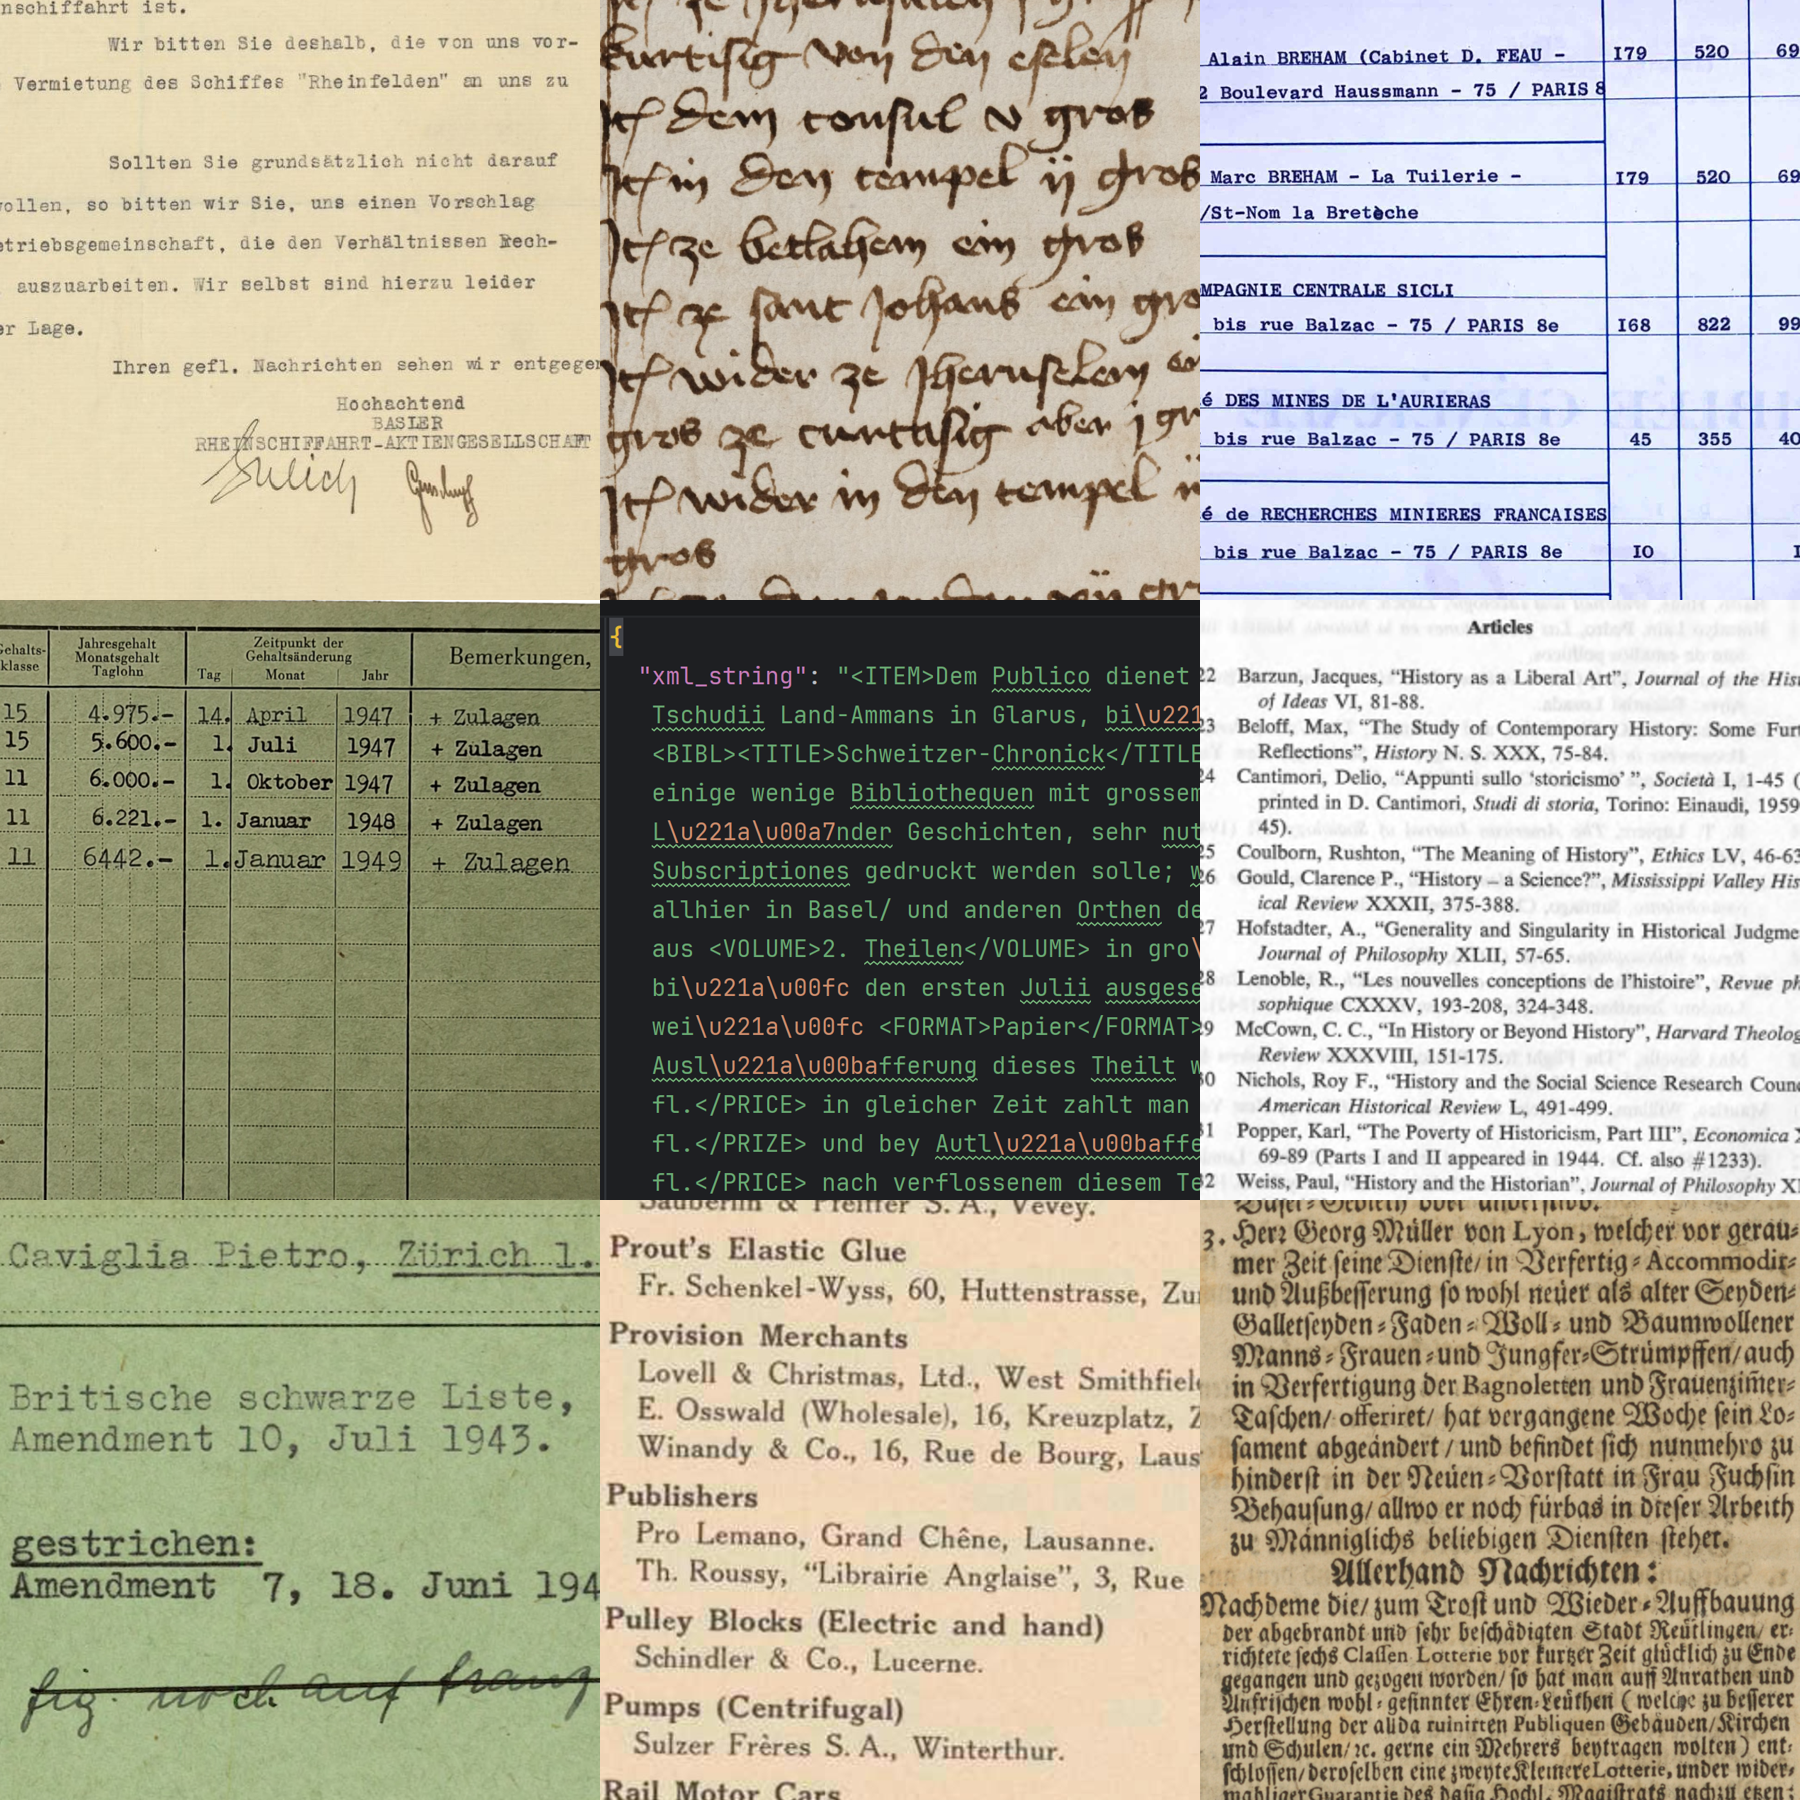 nschiffahrt ist.
Wir bitten Sie deshalb, die von uns vor-
Vermietung des Schiffes "Rheinfelden" an uns zu
Sollten Sie grundsätzlich nicht darauf
ollen, so bitten wir Sie, uns einen Vorschlag
etriebsgemeinschaft, die den Verhältnissen Rech-
auszuarbeiten. Wir selbst sind hierzu leider
er Lage.
Ihren gefl. Nachrichten sehen wir entgegen
Hochachtend
BASLER
RHEINSCHIFFAHRT-AKTIENGESELLSCHAFT
kurtisig von den eselen
It dem consul v gros
It in den tempel ij gros
It ze betlahem ein gros
It ze sant Johans ein gro
It wider ze Jheruselem ei
gros ze curtisig aber j gr
It wider in den tempel ij
gros
Alain BREHAM (Cabinet D. FEAU - I79 520 69
2 Boulevard Haussmann - 75 / PARIS 8
Marc BREHAM - La Tuilerie - I79 520 69
/St-Nom la Bretèche
MPAGNIE CENTRALE SICLI
bis rue Balzac - 75 / PARIS 8e I68 822 99
é DES MINES DE L'AURIERAS
bis rue Balzac - 75 / PARIS 8e 45 355 40
é de RECHERCHES MINIERES FRANCAISES
bis rue Balzac - 75 / PARIS 8e IO I
Gehalts-
klasse
Jahresgehalt
Monatsgehalt
Taglohn
Zeitpunkt der
Gehaltsänderung
Tag Monat Jahr
Bemerkungen,
15 4.975.- 14. April 1947 + Zulagen
15 5.600.- 1. Juli 1947 + Zulagen
11 6.000.- 1. Oktober 1947 + Zulagen
11 6.221.- 1. Januar 1948 + Zulagen
11 6442.- 1. Januar 1949 + Zulagen
{
"xml_string": "<ITEM>Dem Publico dienet
Tschudii Land-Ammans in Glarus, bi\u221
<BIBL><TITLE>Schweitzer-Chronick</TITLE
einige wenige Bibliothequen mit grossem
L\u221a\u00a7nder Geschichten, sehr nut
Subscriptiones gedruckt werden solle; w
allhier in Basel/ und anderen Orthen de
aus <VOLUME>2. Theilen</VOLUME> in gro\
bi\u221a\u00fc den ersten Julii ausgese
wei\u221a\u00fc <FORMAT>Papier</FORMAT>
Ausl\u221a\u00bafferung dieses Theilt w
fl.</PRICE> in gleicher Zeit zahlt man
fl.</PRIZE> und bey Autl\u221a\u00baffe
fl.</PRICE> nach verflossenem diesem Te
Articles
22 Barzun, Jacques, “History as a Liberal Art”, Journal of the Hist
of Ideas VI, 81-88.
23 Beloff, Max, “The Study of Contemporary History: Some Furt
Reflections”, History N. S. XXX, 75-84.
24 Cantimori, Delio, “Appunti sullo ‘storicismo’ ”, Società I, 1-45 (
printed in D. Cantimori, Studi di storia, Torino: Einaudi, 1959
45).
25 Coulborn, Rushton, “The Meaning of History”, Ethics LV, 46-63
26 Gould, Clarence P., “History – a Science?”, Mississippi Valley His
ical Review XXXII, 375-388.
27 Hofstadter, A., “Generality and Singularity in Historical Judgme
Journal of Philosophy XLII, 57-65.
28 Lenoble, R., “Les nouvelles conceptions de l’histoire”, Revue ph
sophique CXXXV, 193-208, 324-348.
29 McCown, C. C., “In History or Beyond History”, Harvard Theolog
Review XXXVIII, 151-175.
30 Nichols, Roy F., “History and the Social Science Research Coun
American Historical Review L, 491-499.
31 Popper, Karl, “The Poverty of Historicism, Part III”, Economica X
69-89 (Parts I and II appeared in 1944. Cf. also #1233).
32 Weiss, Paul, “History and the Historian”, Journal of Philosophy XL
Caviglia Pietro, Zürich 1.
Britische schwarze Liste,
Amendment 10, Juli 1943.
gestrichen:
Amendment 7, 18. Juni 194
fig. noch auf franz
Säuberlin & Pfeiffer S. A., Vevey.
Prout's Elastic Glue
Fr. Schenkel-Wyss, 60, Huttenstrasse, Zu
Provision Merchants
Lovell & Christmas, Ltd., West Smithfiel
E. Osswald (Wholesale), 16, Kreuzplatz, Z
Winandy & Co., 16, Rue de Bourg, Laus
Publishers
Pro Lemano, Grand Chêne, Lausanne.
Th. Roussy, “Librairie Anglaise”, 3, Rue
Pulley Blocks (Electric and hand)
Schindler & Co., Lucerne.
Pumps (Centrifugal)
Sulzer Frères S. A., Winterthur.
Rail Motor Cars
3. Herr Georg Müller von Lyon, welcher vor gerau-
mer Zeit seine Dienste/ in Verfertig- Accommodir-
und Außbesserung so wohl neüer als alter Seyden-
Galletseyden- Faden- Woll- und Baumwollener
Manns- Frauen- und Jungfer-Strümpffen/ auch
in Verfertigung der Bagnoletten und Frauenzim̄er-
Taschen/ offeriret/ hat vergangene Woche sein Lo-
sament abgeändert / und befindet sich nunmehro zu
hinderst in der Neüen- Vorstatt in Frau Fuchsin
Behausung/ allwo er noch fürbas in dieser Arbeith
zu Männiglichs beliebigen Diensten stehet.
Allerhand Nachrichten:
Nachdeme die/ zum Trost und Wieder- Auffbauung
der abgebrandt und sehr beschädigten Stadt Reütlingen/ er-
richtete sechs Classen Lotterie vor kurtzer Zeit glücklich zu Ende
gegangen und gezogen worden/ so hat man auff Anrathen und
Anfrischen wohl- gesinnter Ehren-Leüthen ( welche zu besserer
Herstellung der allda ruinirten Publiquen Gebäuden/ Kirchen
und Schulen/ ꝛc. gerne ein Mehrers beytragen wolten ) ent-
schlossen/ deroselben eine zweyte Kleinere Lotterie, under wider-
mahliger Guarantie des dasig Hochl. Magistrats nachzu